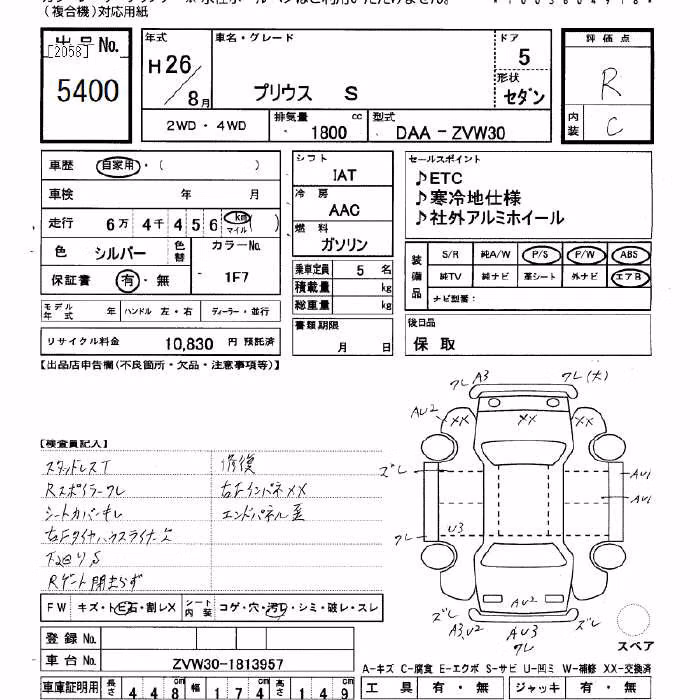 (複合機)対応用紙
出品No.
[2058]
5400
年式
H26/8月
車名・グレード
プリウス S
ドア
5
形状
セダン
評価点
R
内装
C
2WD・4WD
排気量 1800 cc
型式 DAA-ZVW30
車歴 自家用・( )
車検 年 月
走行 6万 4千 4 5 6 km マイル ( )
色 シルバー 色替
カラーNo. 1F7
保証書 有・無
シフト
IAT
冷房
AAC
燃料
ガソリン
乗車定員 5 名
積載量 kg
総重量 kg
書類期限
月 日
セールスポイント
♪ETC
♪寒冷地仕様
♪社外アルミホイール
装備品
S/R 純A/W P/S P/W ABS
純TV 純ナビ 革シート 外ナビ エアB
ナビ型番:
後日品
保 取
モデル年式 年 ハンドル 左・右 ディーラー・並行
リサイクル料金 10,830 円 預託済
【出品店申告欄(不良箇所・欠品・注意事項等)】
【検査員記入】
スタッドレスT
Rスポイラーワレ
シートカバーキレ
右Fタイヤハウスライナー欠
Rゲート閉まらず
修復
右Fインパネ XX
エンドパネル歪
FW キズ・トビ石・割レX
シート内装 コゲ・穴・汚レ・シミ・破レ・スレ
ワレ A3
ワレ(大)
AU2
XX
XX
XX
ズレ
AU1
AU1
ワレ
U3
AU2
ズレ
A3,U2
AU3
ワレ
ズレ
スペア
登録No.
車台No. ZVW30-1813957
A-キズ C-腐食 E-エクボ S-サビ U-凹ミ W-補修 XX-交換済
車庫証明用 長さ 448 cm 幅 174 cm 高さ 149 cm
工具 有・無 ジャッキ 有・無